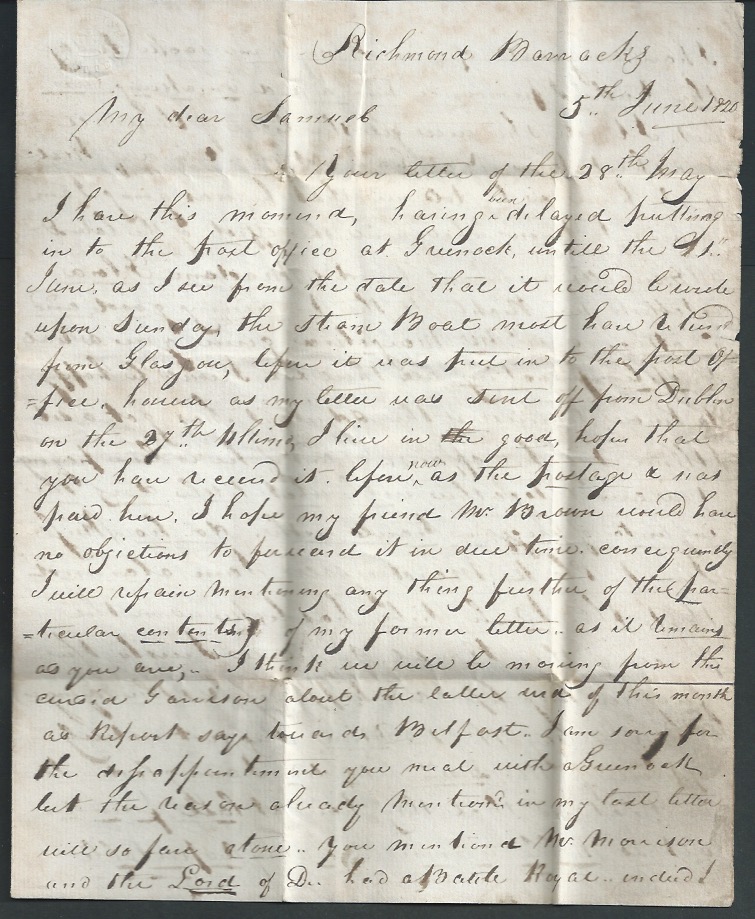 Richmond Barracks
My dear Samuel 5th June 1820
Your letter of the 28th May
I have this momend, having been delayed putting
in to the post office at Greenock, untill the 1st
June, as I see from the date that it would be wrote
upon Sunday, the Steam Boat most have
from Glasgow, before it was put in to the post Of-
=fice, however as my letter was sent off from Dublin
on the 27th Ultimo, I live in the good, hopes that
you have received it. before now, as the postage was
paid here. I hope my friend Mr Brown would have
no objections to forward it in due time. consequendly
I will refrain mentioning any thing further of the par-
=ticular contents of my former letter.. as it remains
as you are,.. I think we will be moving from the
cursid Garrison about the latter end of this month
as Report says towards Belfast.. I am sorry for
the disappointment you meat with a Greenock
but the reason already mentiond in my last letter
will so far atone.. You mentiond Mr Morrison
and the Lord of D.. had a Battle Royal.. indeed